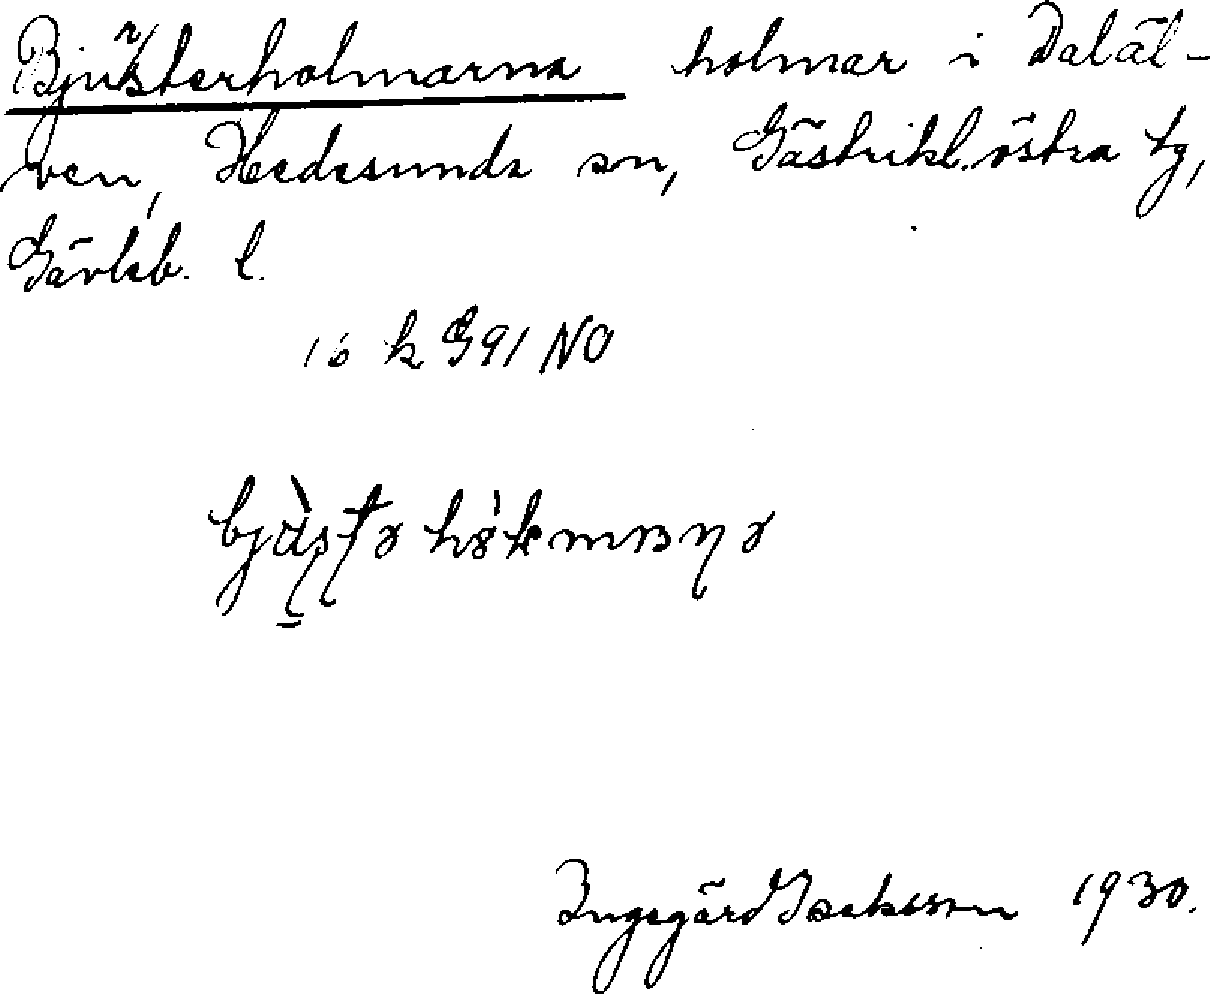 Bjursterholmarna holmar i Daläl-
ven, Hedesunda sn, Gästrikl. östra tg,
Gävleb. l.
16 k G91 NO
Ingegärd Isaksson 1930.